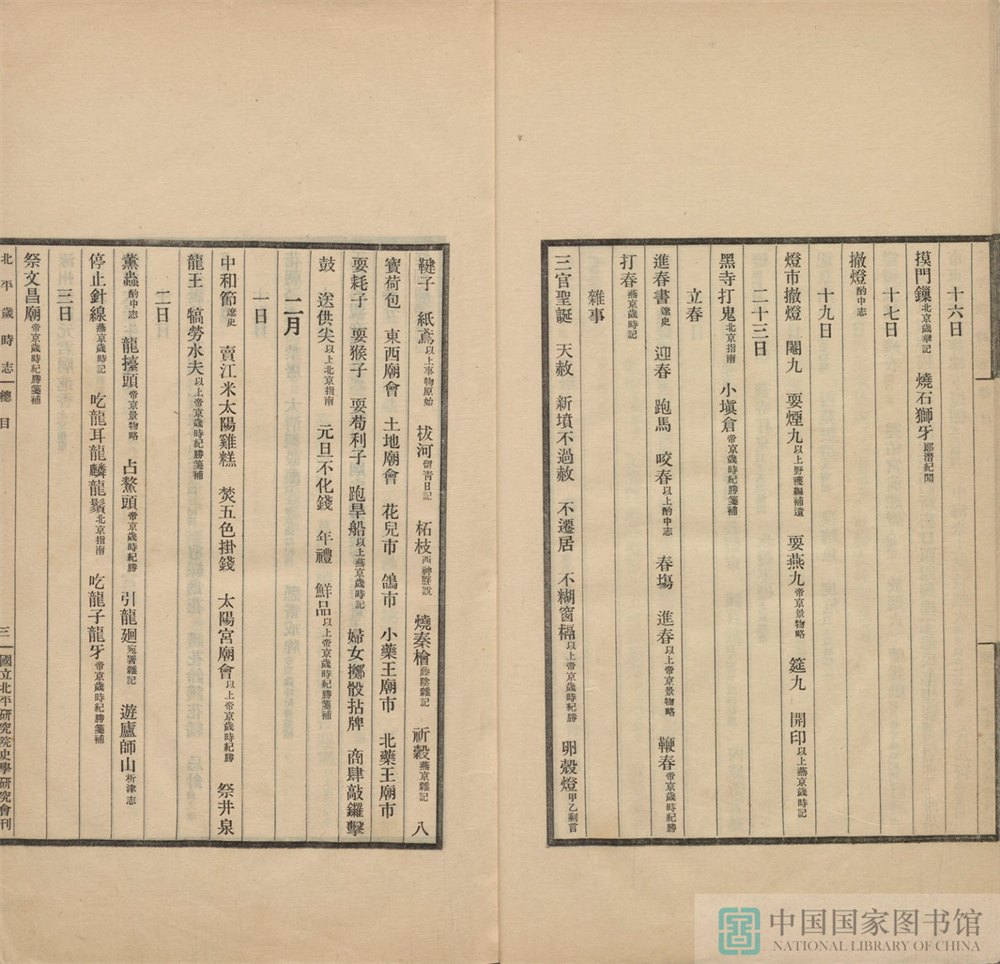 十六日
摸門鏁北京歲華記　燒石獅牙郎潛紀聞
十七日
撤燈酌中志
十九日
燈市撤燈　闈九　耍煙九以上野獲編補遺　耍燕九帝京景物略　筵九　開印以上燕京歲時記
二十三日
黑寺打鬼北京指南　小塡倉帝京歲時紀勝箋補
立春
進春書遼史　迎春　跑馬　咬春以上酌中志　春塲　進春以上帝京景物略　鞭春帝京歲時紀勝
打春燕京歲時記
雜事
三官聖誕　天赦　新墳不過赦　不遷居　不糊窗槅以上帝京歲時紀勝　卵殼燈甲乙剩言
鞬子　紙鳶以上事物原始　拔河留青日記　柘枝西神脞說　燒秦檜藤陰雜記　祈穀燕京雜記　八
寶荷包　東西廟會　土地廟會　花兒市　鴿市　小藥王廟市　北藥王廟市
耍耗子　耍猴子　耍苟利子　跑旱船以上燕京歲時記　婦女擲骰拈牌　商肆敲鑼擊
鼓　送供尖以上北京指南　元旦不化錢　年禮　鮮品以上帝京歲時紀勝箋補
二月
一日
中和節遼史　賣江米太陽雞糕　焚五色掛錢　太陽宮廟會以上帝京歲時紀勝　祭井泉
龍王　犒勞水夫以上帝京歲時紀勝箋補
二日
薰蟲酌中志　龍擡頭帝京景物略　占鰲頭帝京歲時紀勝　引龍廻宛署雜記　遊廬師山析津志
停止針線燕京歲時記　吃龍耳龍麟龍鬚北京指南　吃龍子龍牙帝京歲時紀勝箋補
三日
祭文昌廟帝京歲時紀勝箋補
北平歲時志　總目　三　國立北平硏究院史學硏究會刊
中国国家图书馆
NATIONAL LIBRARY OF CHINA